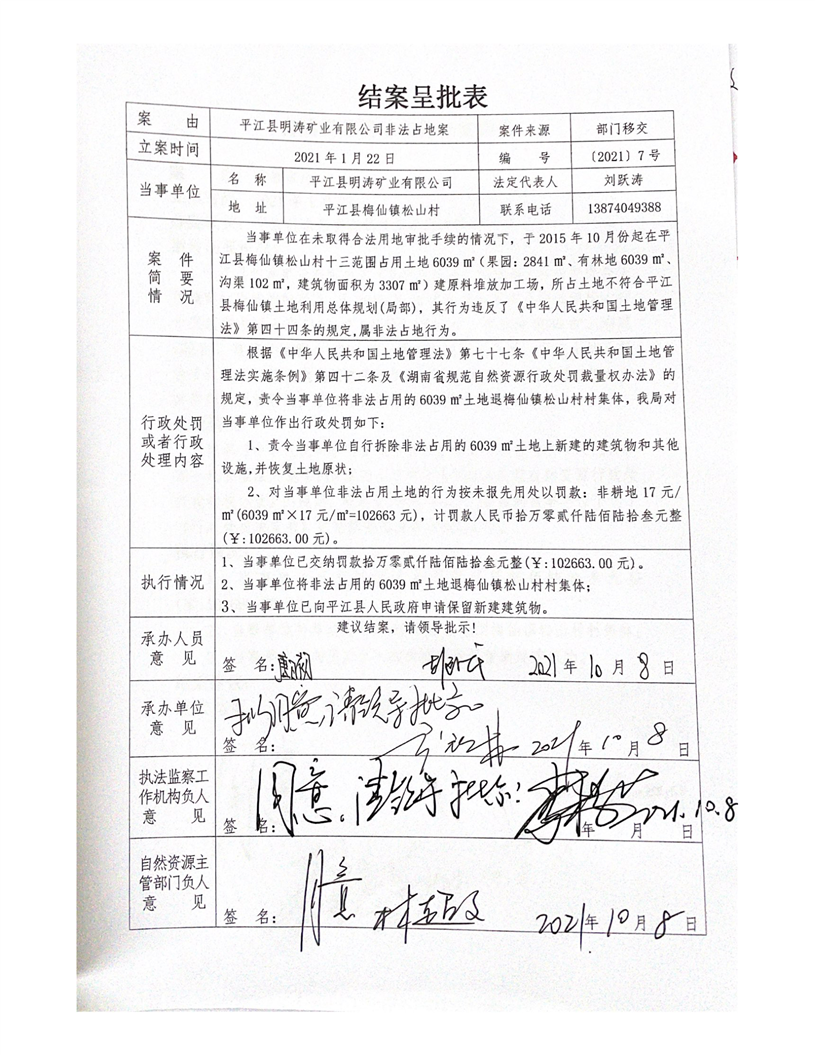 结案呈批表
案 由 平江县明涛矿业有限公司非法占地案 案件来源 部门移交
立案时间 2021年1月22日 编 号 〔2021〕7号
当事单位 名 称 平江县明涛矿业有限公司 法定代表人 刘跃涛
地 址 平江县梅仙镇松山村 联系电话 13874049388
案 件
简 要
情 况
当事单位在未取得合法用地审批手续的情况下，于2015年10月份起在平
江县梅仙镇松山村十三范围占用土地6039㎡（果园：2841㎡、有林地6039㎡、
沟渠102㎡，建筑物面积为3307㎡）建原料堆放加工场，所占土地不符合平江
县梅仙镇土地利用总体规划(局部)，其行为违反了《中华人民共和国土地管理
法》第四十四条的规定,属非法占地行为。
行政处罚
或者行政
处理内容
根据《中华人民共和国土地管理法》第七十七条《中华人民共和国土地管
理法实施条例》第四十二条及《湖南省规范自然资源行政处罚裁量权办法》的
规定，责令当事单位将非法占用的6039㎡土地退梅仙镇松山村村集体，我局对
当事单位作出行政处罚如下：
1、责令当事单位自行拆除非法占用的6039㎡土地上新建的建筑物和其他
设施,并恢复土地原状；
2、对当事单位非法占用土地的行为按未报先用处以罚款：非耕地17元/
㎡(6039㎡×17元/㎡=102663元)，计罚款人民币拾万零贰仟陆佰陆拾叁元整
(￥:102663.00元)。
执行情况
1、当事单位已交纳罚款拾万零贰仟陆佰陆拾叁元整(￥:102663.00元)。
2、当事单位将非法占用的6039㎡土地退梅仙镇松山村村集体；
3、当事单位已向平江县人民政府申请保留新建建筑物。
承办人员
意 见
建议结案，请领导批示!
签 名: 2021年10月8日
承办单位
意 见
同意，请领导批示
签 名: 2021年10月8日
执法监察工
作机构负人
意 见
同意。请领导批示！
签 名: 年 月 日 2021.10.8
自然资源主
管部门负人
意 见
同意
签 名: 2021年10月8日